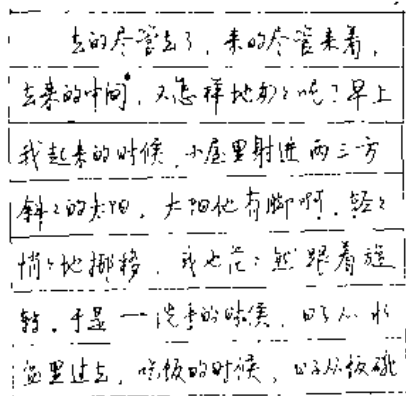 去的尽管去了，来的尽管来着，
去来的中间，又怎样地匆々呢？早上
我起来的时候，小屋里射进两三方
斜々的太阳。太阳他有脚啊，轻々
悄々地挪移，我也茫々然跟着旋
转。于是——洗手的时候，日子从水
盆里过去，吃饭的时候，日子从饭碗